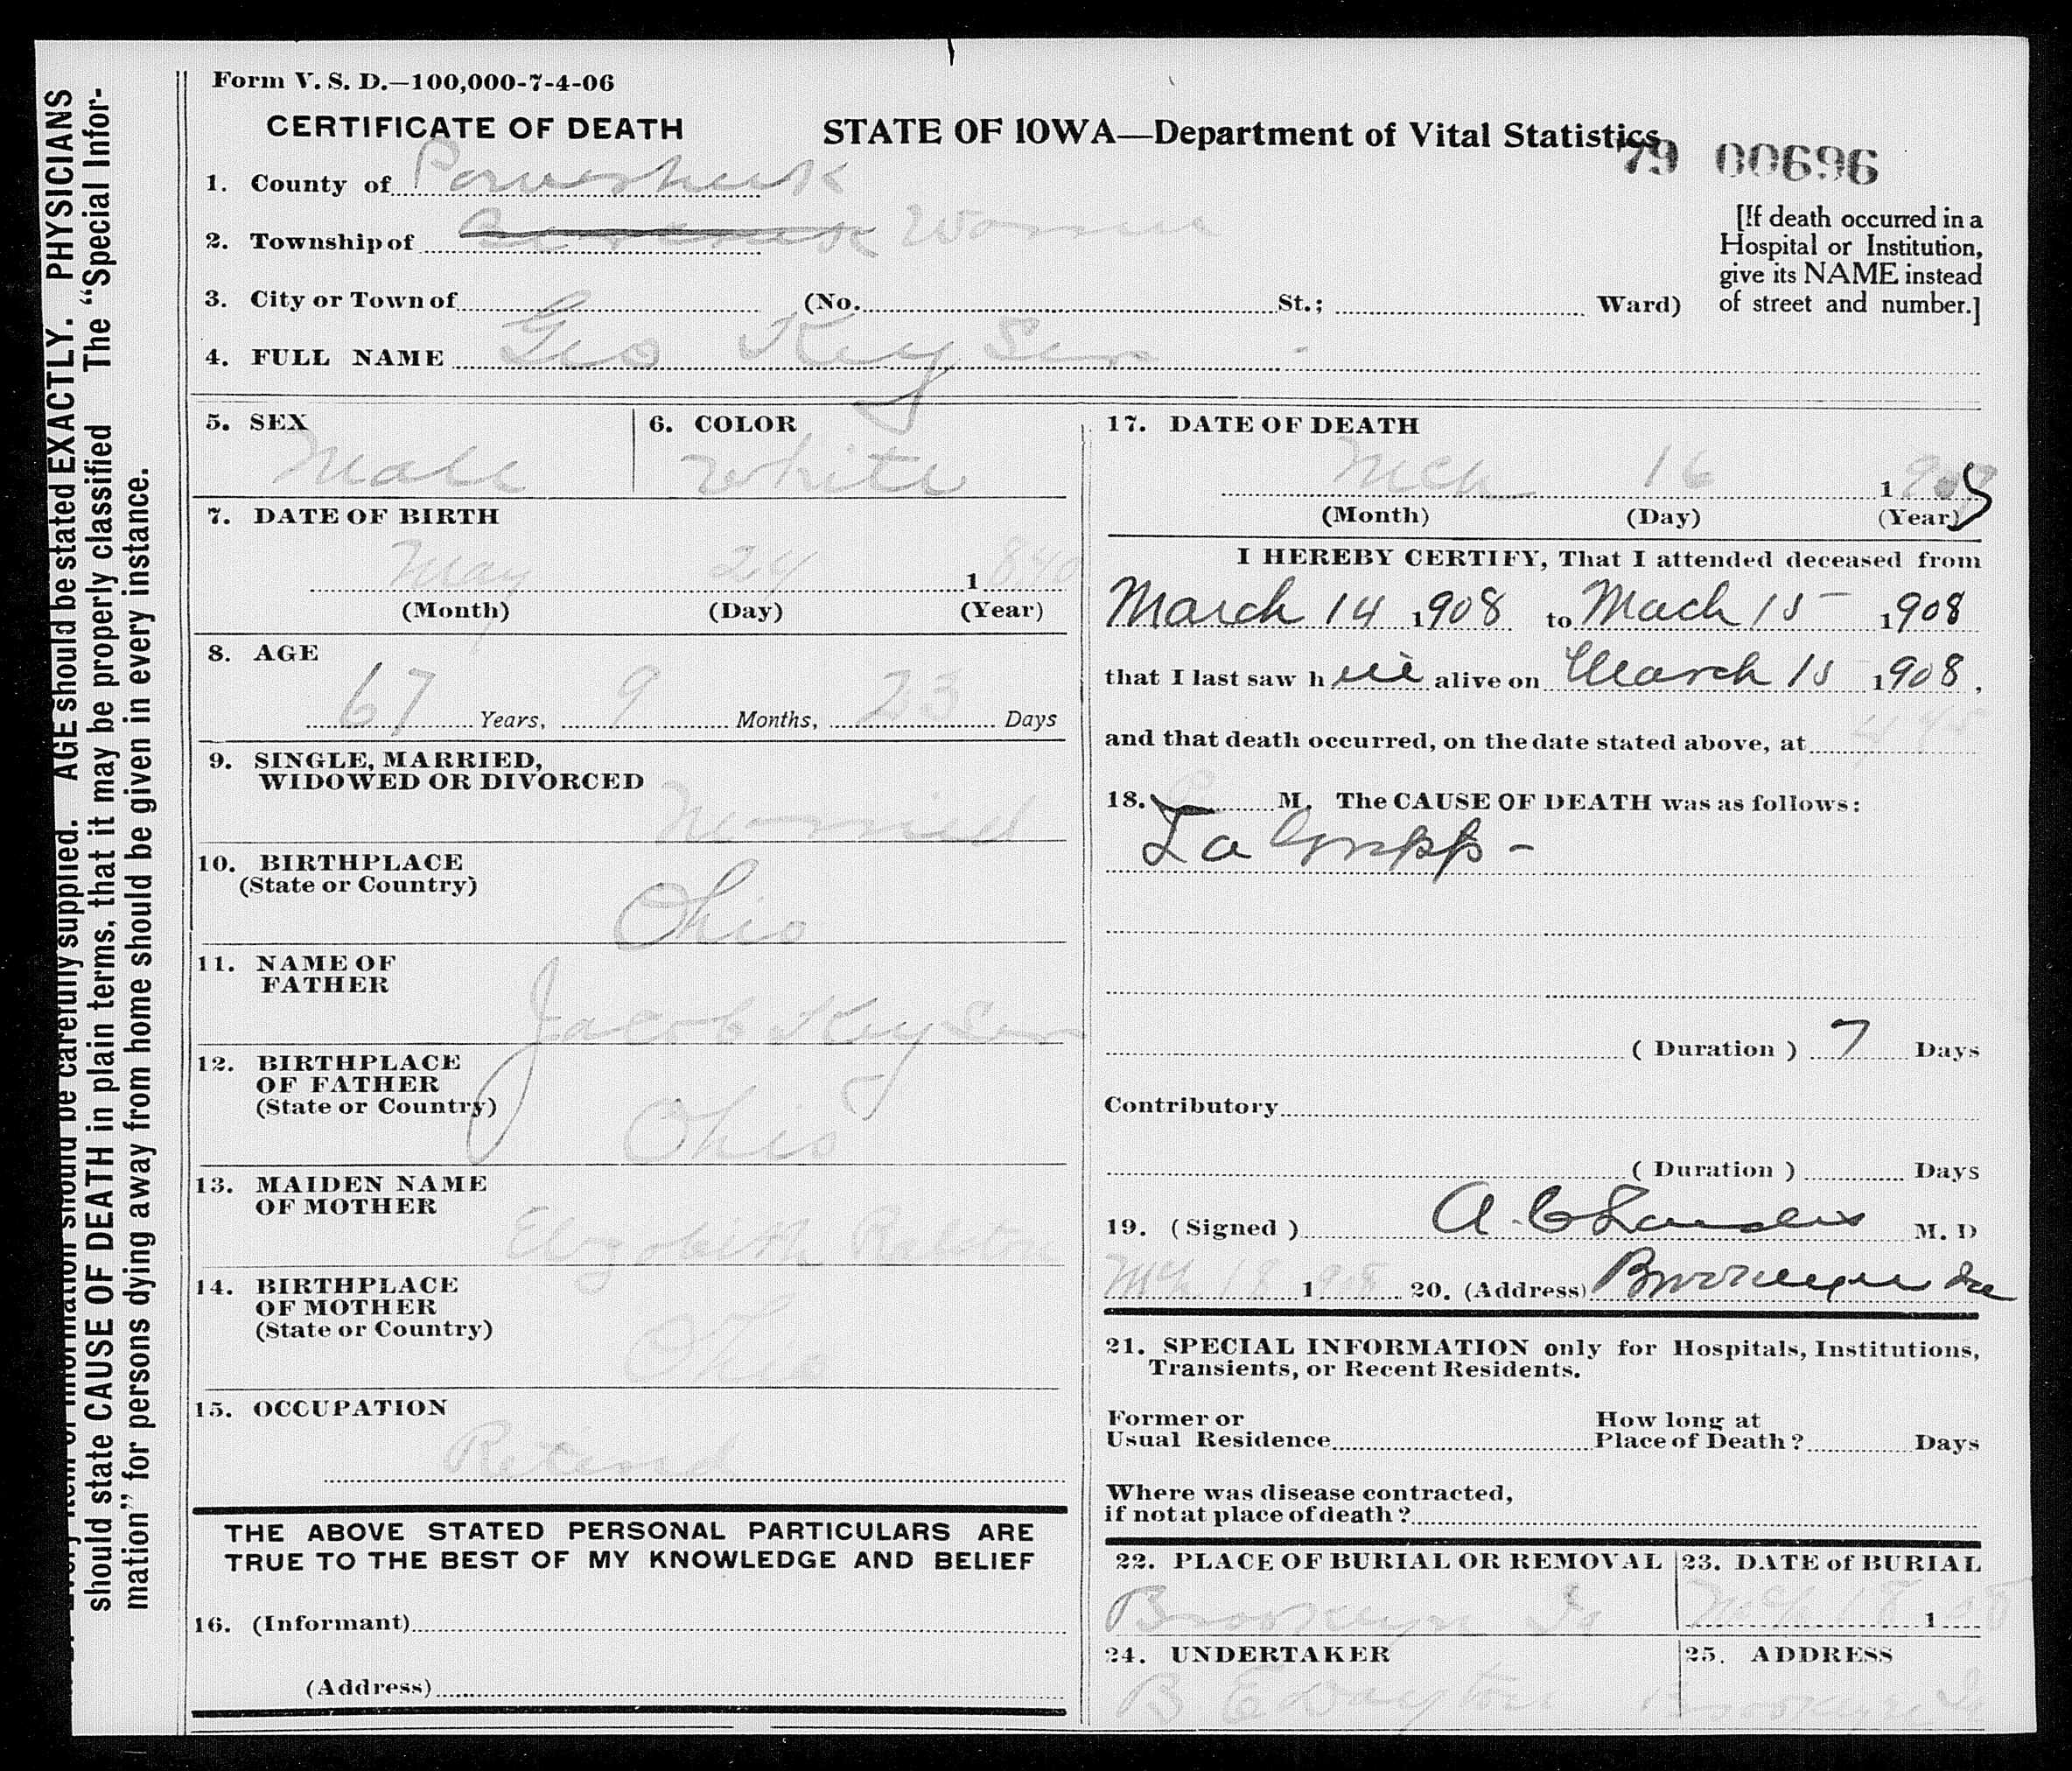 Form V. S. D.—100,000-7-4-06
CERTIFICATE OF DEATH
STATE OF IOWA—Department of Vital Statistics
79 00696
1. County of Poweshiek
2. Township of
3. City or Town of (No. St.; Ward)
[If death occurred in a
Hospital or Institution,
give its NAME instead
of street and number.]
4. FULL NAME Geo Keyser
5. SEX
Male
6. COLOR
White
7. DATE OF BIRTH
May 24 1840
(Month) (Day) (Year)
8. AGE
67 Years, 9 Months, 23 Days
9. SINGLE, MARRIED,
WIDOWED OR DIVORCED
Married
10. BIRTHPLACE
(State or Country)
Ohio
11. NAME OF
FATHER
Jacob Keyser
12. BIRTHPLACE
OF FATHER
(State or Country)
Ohio
13. MAIDEN NAME
OF MOTHER
Elizabeth Ralston
14. BIRTHPLACE
OF MOTHER
(State or Country)
Ohio
15. OCCUPATION
Retired
THE ABOVE STATED PERSONAL PARTICULARS ARE
TRUE TO THE BEST OF MY KNOWLEDGE AND BELIEF
16. (Informant)
(Address)
17. DATE OF DEATH
Mch 16 1908
(Month) (Day) (Year)
I HEREBY CERTIFY, That I attended deceased from
March 14 1908 to Mach 15 1908
that I last saw h im alive on March 15 1908,
and that death occurred, on the date stated above, at 4 45
18. P M. The CAUSE OF DEATH was as follows:
La Gripp -
(Duration) 7 Days
Contributory
(Duration) Days
19. (Signed) A. C. M. D
Mch 18 1908 20. (Address) Brooklyn Ia
21. SPECIAL INFORMATION only for Hospitals, Institutions,
Transients, or Recent Residents.
Former or
Usual Residence
How long at
Place of Death? Days
Where was disease contracted,
if not at place of death?
22. PLACE OF BURIAL OR REMOVAL
Brooklyn Ia
23. DATE of BURIAL
Mch 18 1 08
24. UNDERTAKER
B E Dayton
25. ADDRESS
Brooklyn Ia
should be carefully supplied. AGE should be stated EXACTLY. PHYSICIANS
should state CAUSE OF DEATH in plain terms, that it may be properly classified The "Special Infor-
mation" for persons dying away from home should be given in every instance.